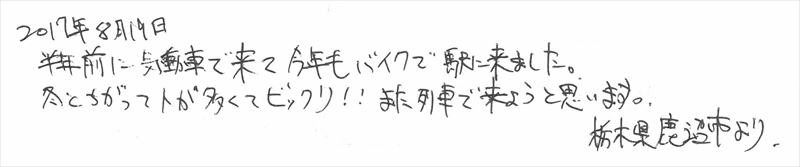 2017年8月19日
半年前に気動車で来て今年もバイクで駅に来ました。
冬とちがって人が多くてビックリ!!また列車で来ようと思います。
栃木県鹿沼市より.